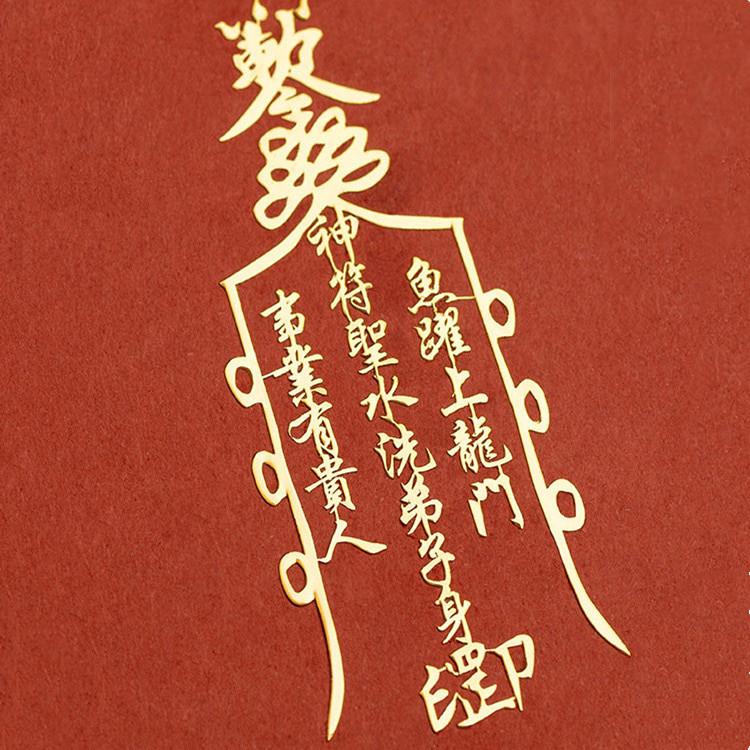 魚躍上龍門
神符聖水洗弟子身
事業有貴人